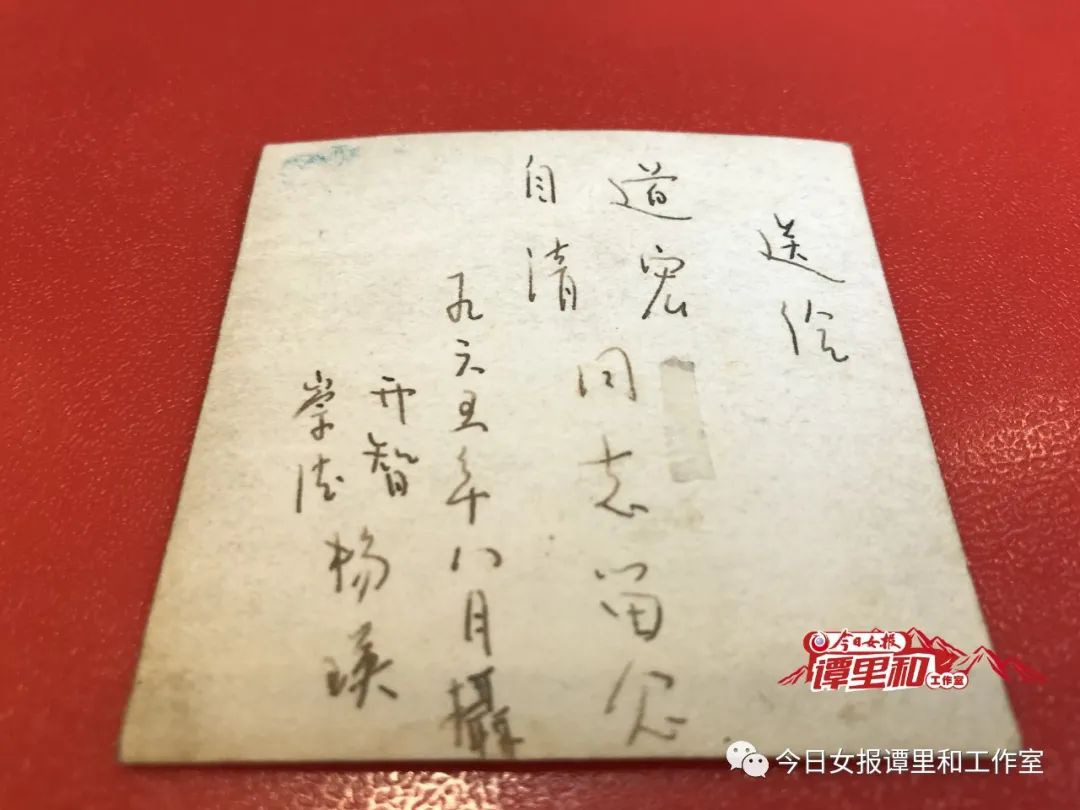 送给
道宏
自清
同志留念
九六五年八月攝
开智
崇德
杨瑛
今日女报
谭里和
工作室
今日女报谭里和工作室